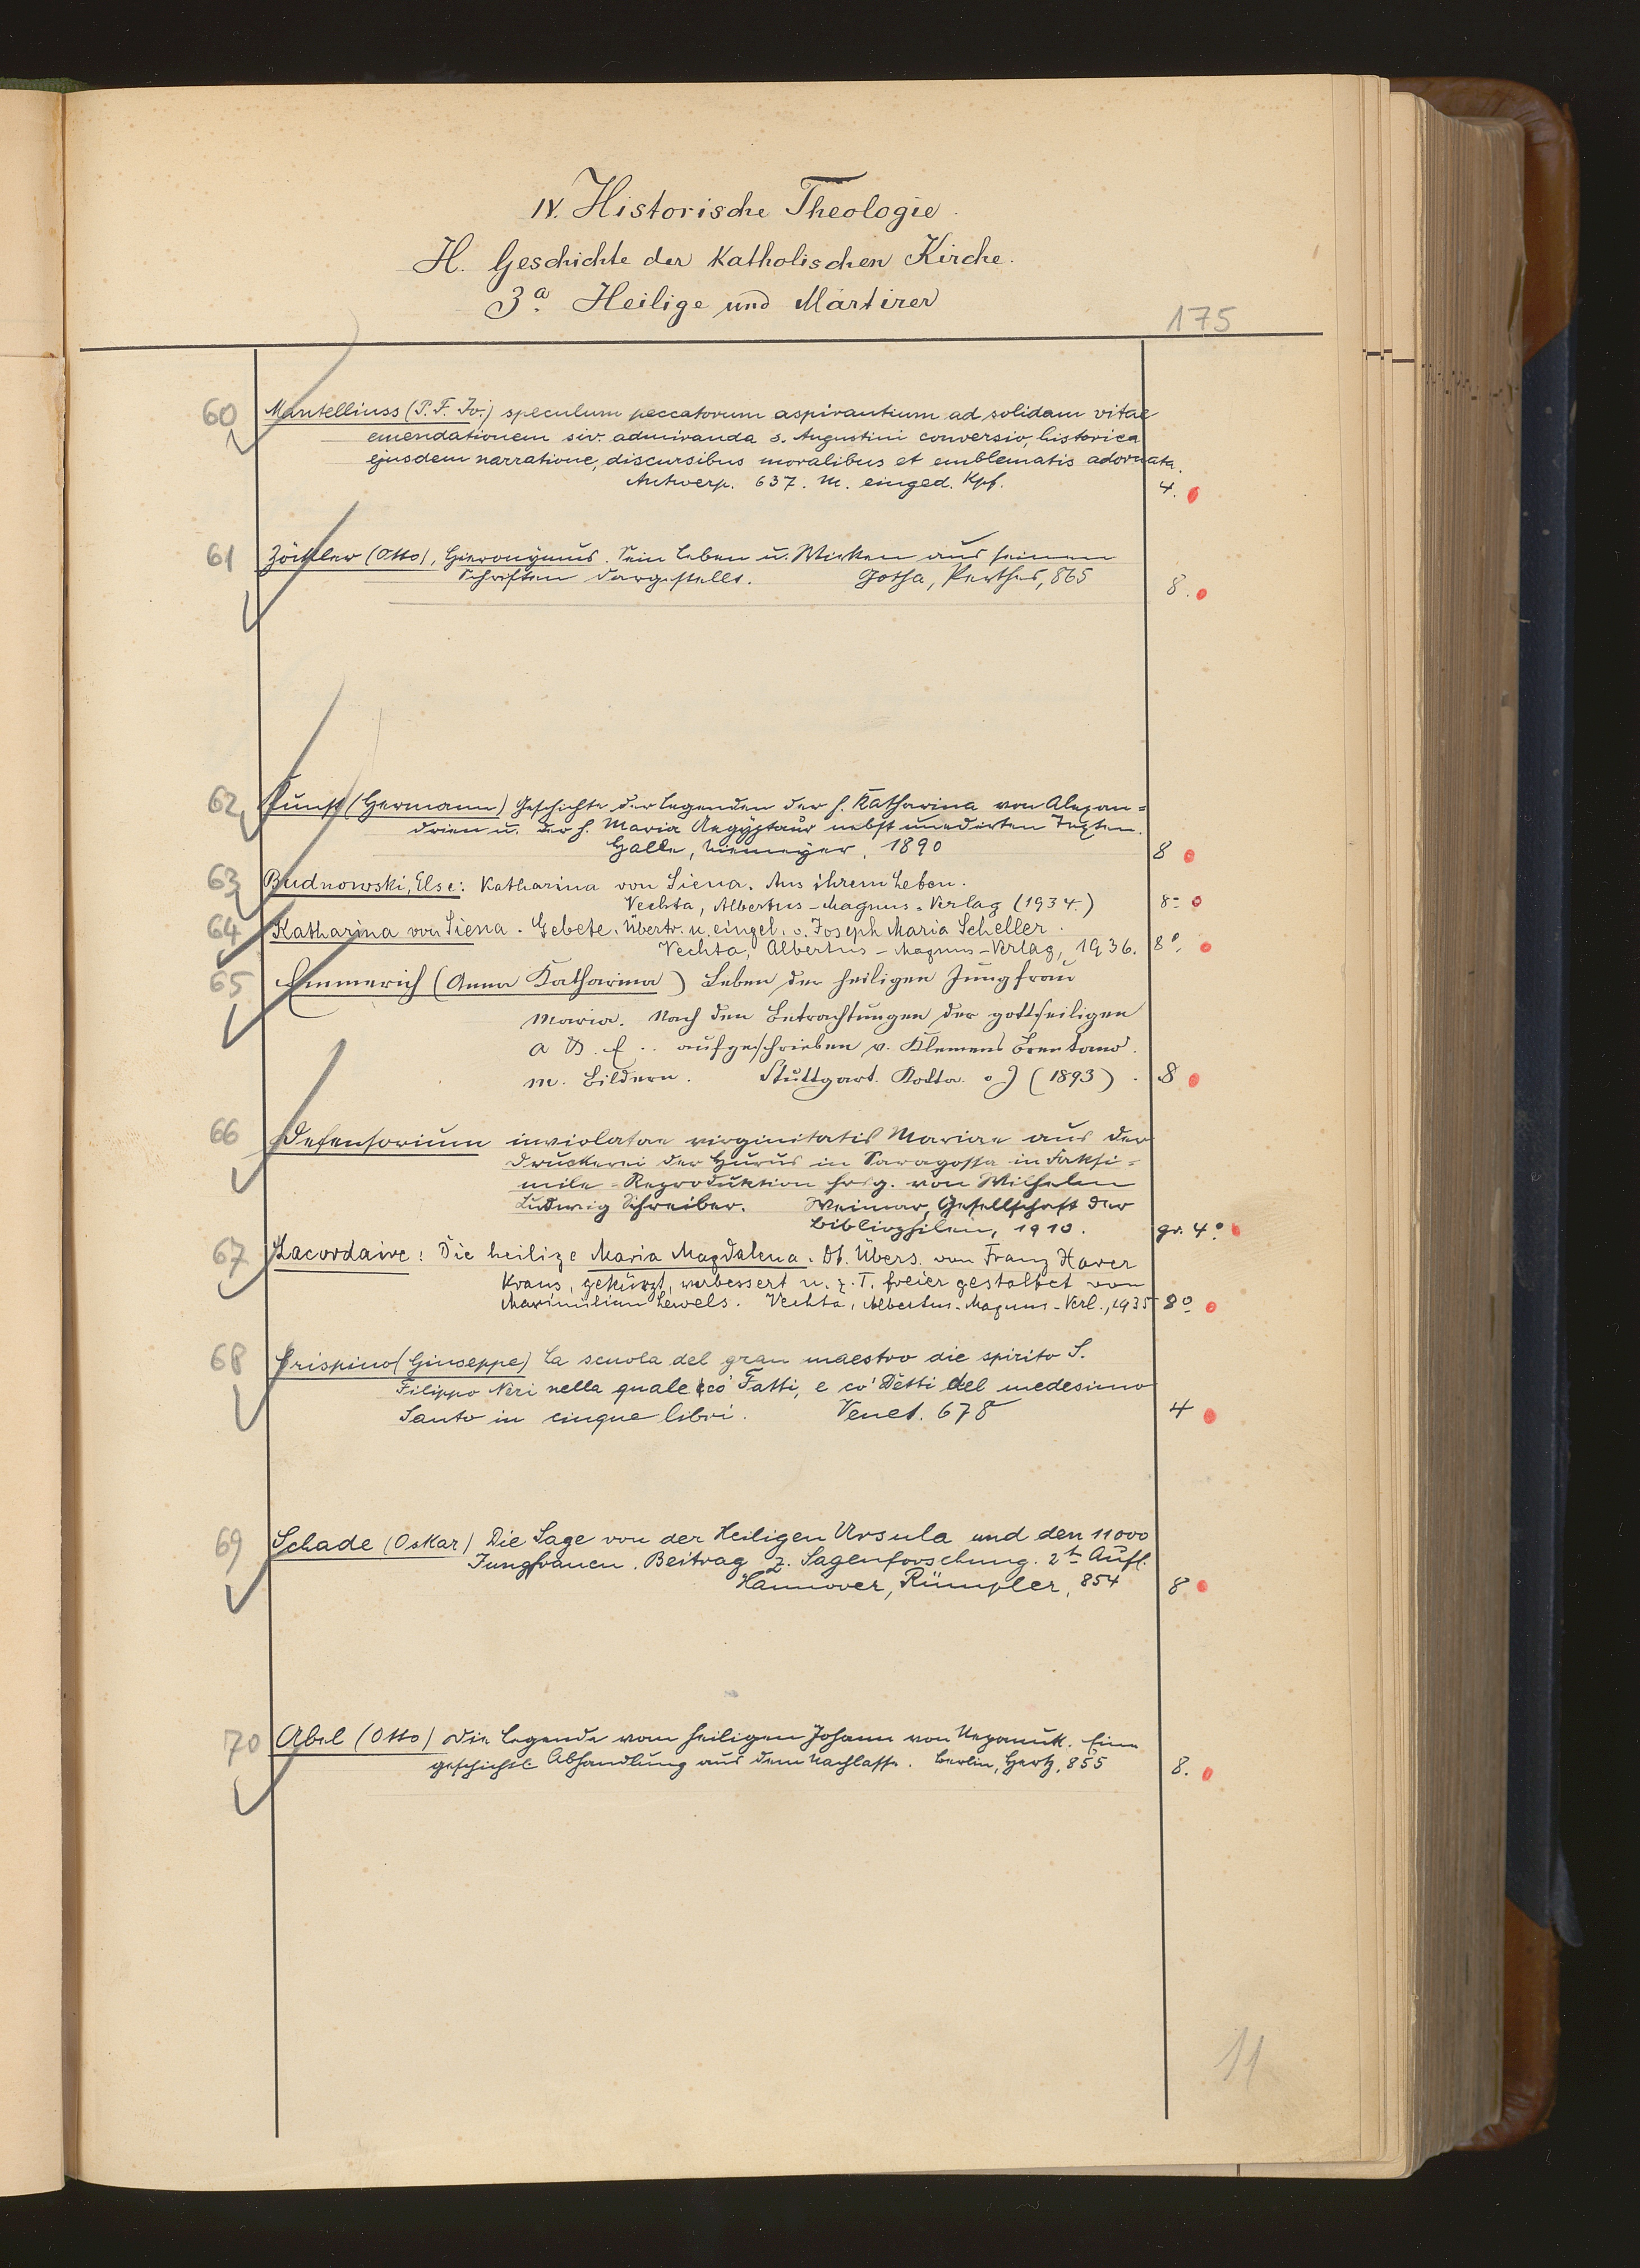 IV. Historische Theologie.
H. Geschichte der Katholischen Kirche.
3a. Heilige und Märtirer
175
60 Mantelliuss (P. F. Jo.) speculum peccatorum aspirantium ad solidam vitae
emendationem siv. admiranda s. Augustini conversio, historica
ejusdem narratione, discursibus moralibus et emblematis adornata.
Antwerp. 637. M. einged. Kpf. 4.
61 Zöckler (Otto), Hieronÿmus. Sein Leben u. Wirken aus seinen
Schriften dargestellt. Gotha, Perthes, 865 8.
62 Kunst (Hermann) Geschichte der Legenden der h. Katharina von Alexan=
drien u. der h. Maria Aegÿptaur nebst unedirten Texten.
Halle, Niemeÿer, 1890 8
63 Budnowski, Else: Katharina von Siena. Aus ihrem Leben.
Vechta, Albertus-Magnus-Verlag (1934.) 8°
64 Katharina von Siena. Gebete. Übertr. u. eingel. v. Joseph Maria Scheller.
Vechta, Albertus-Magnus-Verlag, 1936. 8°.
65 Emmerich (Anna Katharina) Leben der heiligen Jungfrau
Maria. Nach den Betrachtungen der gottseiligen
A K. E.. aufgeschrieben v. Klemens Brentano.
m. Bildern. Stuttgart. Kotta. o J (1893). 8
66 Defensorium inviolatae virginitatis Mariae aus der
Druckerei der Hurus in Saragossa in Faksi=
mile-Reproduktion hrsg. von Wilhelm
Ludwig Schreiber. Weimar, Gesellschaft der
Bibliophilen, 1910. gr. 4°.
67 Lacordaire: Die heilige Maria Magdalena. Dt. Übers. von Franz Xaver
Kraus, gekürzt, verbessert u. z. T. freier gestaltet von
Maximilian Lewels. Vechta, Albertus-Magnus-Verl., 1935 8°
68 Crispino (Giuseppe) la scuola del gran maestro die spirito S.
Filippo Neri nella quale có Fatti, e co' Détti del medesimo
Santo in cinque libri. Venet. 678 4
69 Schade (Oskar) Die Sage von der Heiligen Ursula und den 11000
Jungfrauen. Beitrag z. Sagenforschung. 2t Aufl.
Hannover, Rümpler, 854 8
70 Abel (Otto) Die Legende vom heiligen Johann von Nepomuk. Eine
geschichtl Abhandlung aus dem Nachlasse. Berlin, Hertz, 855 8.
11